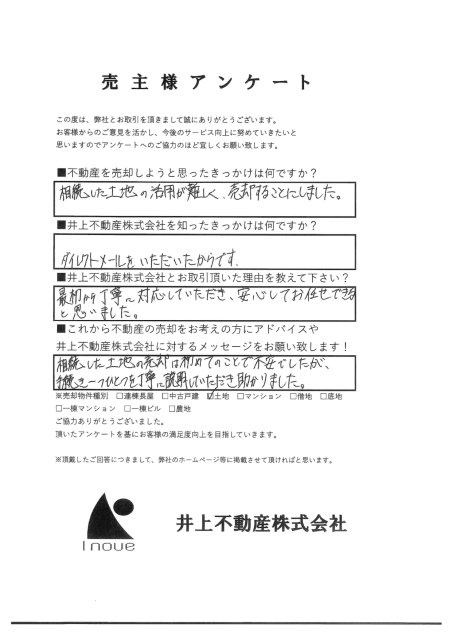 売主様アンケート
この度は、弊社とお取引を頂きまして誠にありがとうございます。
お客様からのご意見を活かし、今後のサービス向上に努めていきたいと
思いますのでアンケートへのご協力のほど宜しくお願い致します。
■不動産を売却しようと思ったきっかけは何ですか？
相続した土地の活用が難しく、売却することにしました。
■井上不動産株式会社を知ったきっかけは何ですか？
ダイレクトメールをいただいたからです。
■井上不動産株式会社とお取引頂いた理由を教えて下さい？
最初から丁寧に対応していただき、安心してお任せできる
と思いました。
■これから不動産の売却をお考えの方にアドバイスや
井上不動産株式会社に対するメッセージをお願い致します！
相続した土地の売却は初めてのことで不安でしたが、
手続き一つひとつを丁寧に説明していただき助かりました。
※売却物件種別 □連棟長屋 □中古戸建 ☑土地 □マンション □借地 □底地
□一棟マンション □一棟ビル □農地
ご協力ありがとうございました。
頂いたアンケートを基にお客様の満足度向上を目指していきます。
※頂戴したご回答につきまして、弊社のホームページ等に掲載させて頂ければと思います。
Inoue
井上不動産株式会社